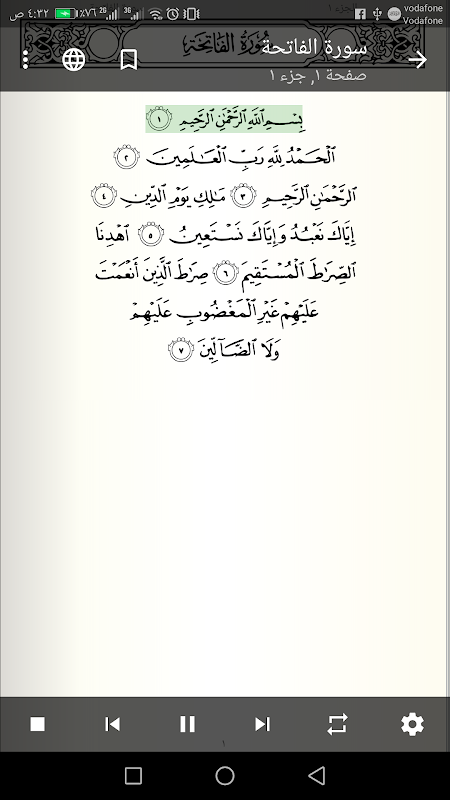 ٤:٣٢ ص ٪٧٦ 2G 3G vodafone
Vodafone
الجزء ١
سُورَةُ الفَاتِحَةِ
سورة الفاتحة
صفحة ١, جزء ١
بِسْمِ ٱللَّهِ ٱلرَّحْمَٰنِ ٱلرَّحِيمِ ١
ٱلْحَمْدُ لِلَّهِ رَبِّ ٱلْعَٰلَمِينَ ٢
ٱلرَّحْمَٰنِ ٱلرَّحِيمِ ٣ مَٰلِكِ يَوْمِ ٱلدِّينِ ٤
إِيَّاكَ نَعْبُدُ وَإِيَّاكَ نَسْتَعِينُ ٥ ٱهْدِنَا
ٱلصِّرَٰطَ ٱلْمُسْتَقِيمَ ٦ صِرَٰطَ ٱلَّذِينَ أَنْعَمْتَ
عَلَيْهِمْ غَيْرِ ٱلْمَغْضُوبِ عَلَيْهِمْ
وَلَا ٱلضَّآلِّينَ ٧
١